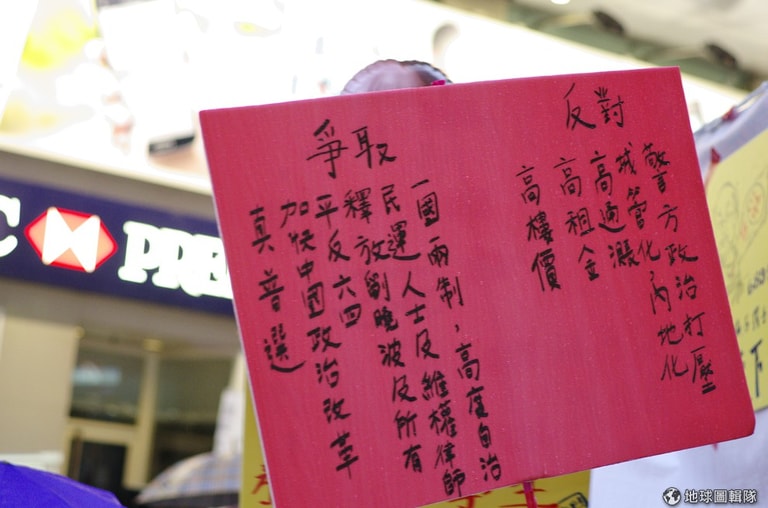 爭取
真普選
加快中國政治改革
平反六四
釋放劉曉波及所有
民運人士及維權律師
一國兩制，高度自治
反對
高樓價
高租金
高通漲
城管化，內地化
警方政治打壓
C PRE
689
下
地球圖輯隊